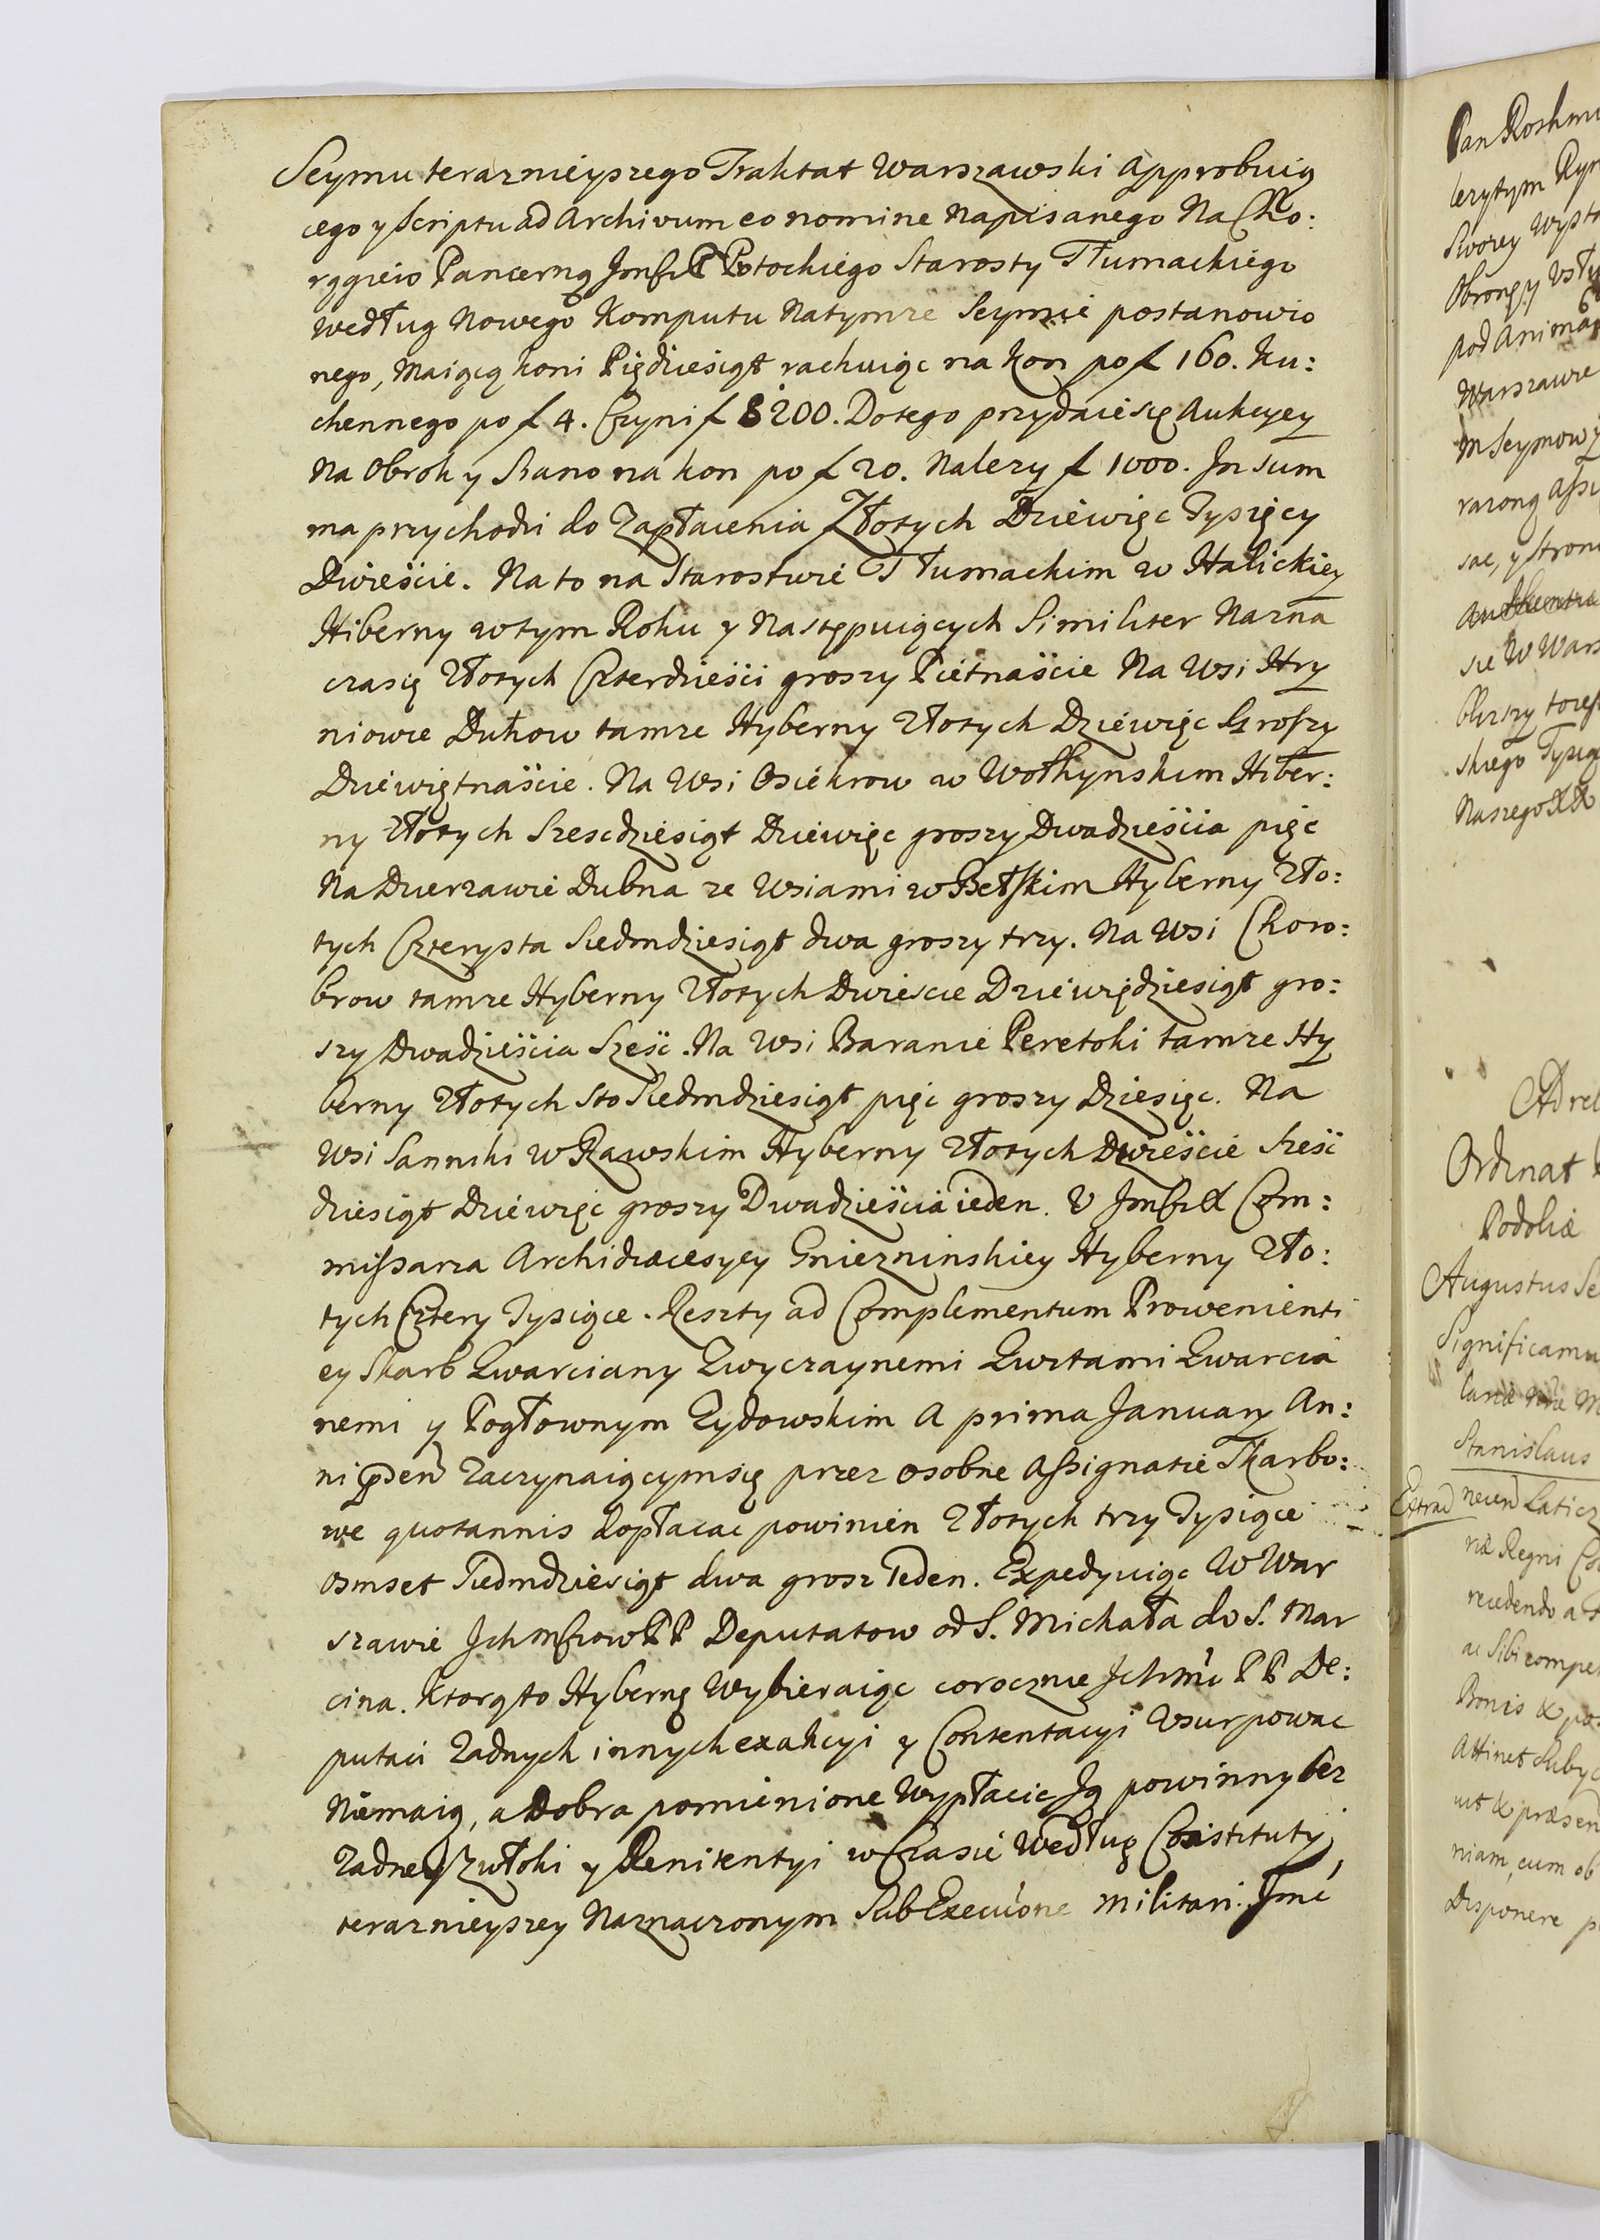 Seymu terarznieyszego Traktat Warszawski approbuią
cego y scriptu ad Archivum eo nomine napisanego Na Cho:
rągieio Pancerną Jmści P Potockiego Starosty Tłumackiego
według nowego Komputu na tymze Seymie postanowio
nego, maiącą koni Pięćdziesiąt rachuiąc na kon po f 160. Ku:
chennego po f 4. Czyni f 8200. Do tego przydaie się Aukcyey
Na Obrok y Siano na kon po f 20. Nalezy f 1000. In sum
ma przychodzi do Zapłacenia Złotych Dziewięc Tysięcy
Dwieście. Na to na Starostwie Tłumackim w Halickiey
Hiberny w tym Roku y Następuiących Similiter Nazna
cza się Złotych Czterdzieści groszy Pietnaście Na Wsi Hry
niowie Dułow tamze Hyberny Złotych Dziewięc Groszy
Dziewiętnaście. Na Wsi Osiekrow w Wołhynskim Hiber:
ny Złotych Szescdziesiąt Dziewięc groszy Dwadzieścia pięc
Na Dzierzawie Dubna ze Wsiami w Bełskim Hyberny Zło:
tych Czterysta Siedmdziesiąt dwa groszy trzy. Na Wsi Choro:
brow tamze Hyberny Złotych Dwiescie Dziewiędziesiąt gro:
szy Dwadzieścia Sześc. Na Wsi Baranie Peretoki tamze Hy
berny Złotych Sto Siedmdziesiąt pięc groszy Dziesięc. Na
Wsi Sanniki w Rawskim Hyberny Złotych Dwieście Sześc
dziesiąt Dziewięc groszy Dwadzieścia ieden. U Jmści X Com:
missarza Archidiæcesyey Gniezninskiey Hyberny Zło:
tych Cztery Tysiące. Reszty ad Complementum Prowenienti
ey Skarb Kwarciany Zwyczaynemi Kwitami Kwarcia
nemi y Pogłownym Zydowskim A prima January An:
ni præsen Zaczynaiącym się przez osobne Assignatie Skarbo:
we quotannis dopłacac powinien Złotych trzy Tysiące
osmset Siedmdziesiąt dwa grosz Ieden. Expedyuiąc W War
szawie Ich Mściow PP Deputatow od S. Michała do S. Mar
cina. Ktorą to Hybernę Wybieraiąc corocznie Ich Mć PP De:
putaci Zadnych innych exakcyi y Contentacyi Usurpowac
Niemaią, a Dobra pomienione Wypłacic Ją powinny bez
Zadney Zwłoki y Renitentyi w Czasie Według Constituty
terazznieyszey Naznaczonym Sub Executione militari. Jmć
Pan
Augustus
Ordinat
Podoliæ
Significamu
Stanislaus